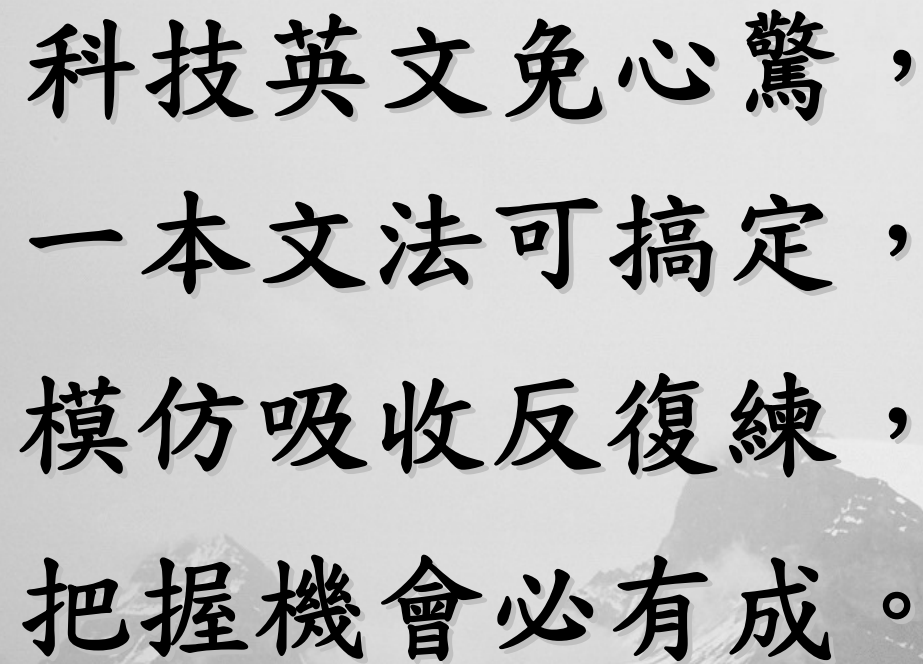 科技英文免心驚，
一本文法可搞定，
模仿吸收反復練，
把握機會必有成。